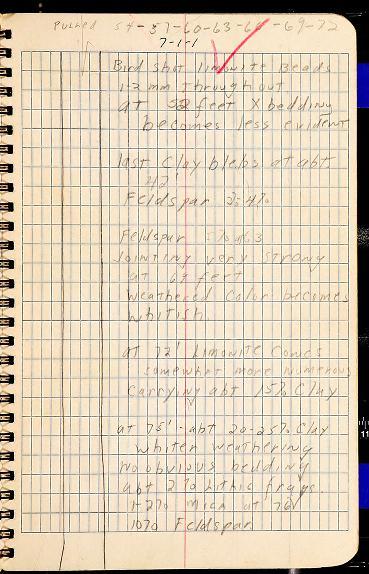 Pulled 54-57-60-63-66-69-72
7-1-1
Bird shot limonite Beads
1-2 mm throughout
at 32 feet X bedding
becomes less evident
last Clay blebs at abt
42'
Feldspar 3-4%
Feldspar % at 63
Jointing very strong
at 69 feet
Weathered Color becomes
whitish
at 72' Limonite Comes
somewhat more numerous
Carrying abt 15% Clay
at 75' - abt 20-25% Clay
whiter weathering
no obvious bedding
abt 2% Lithic frags.
1-2% mica at 76'
10% Feldspar